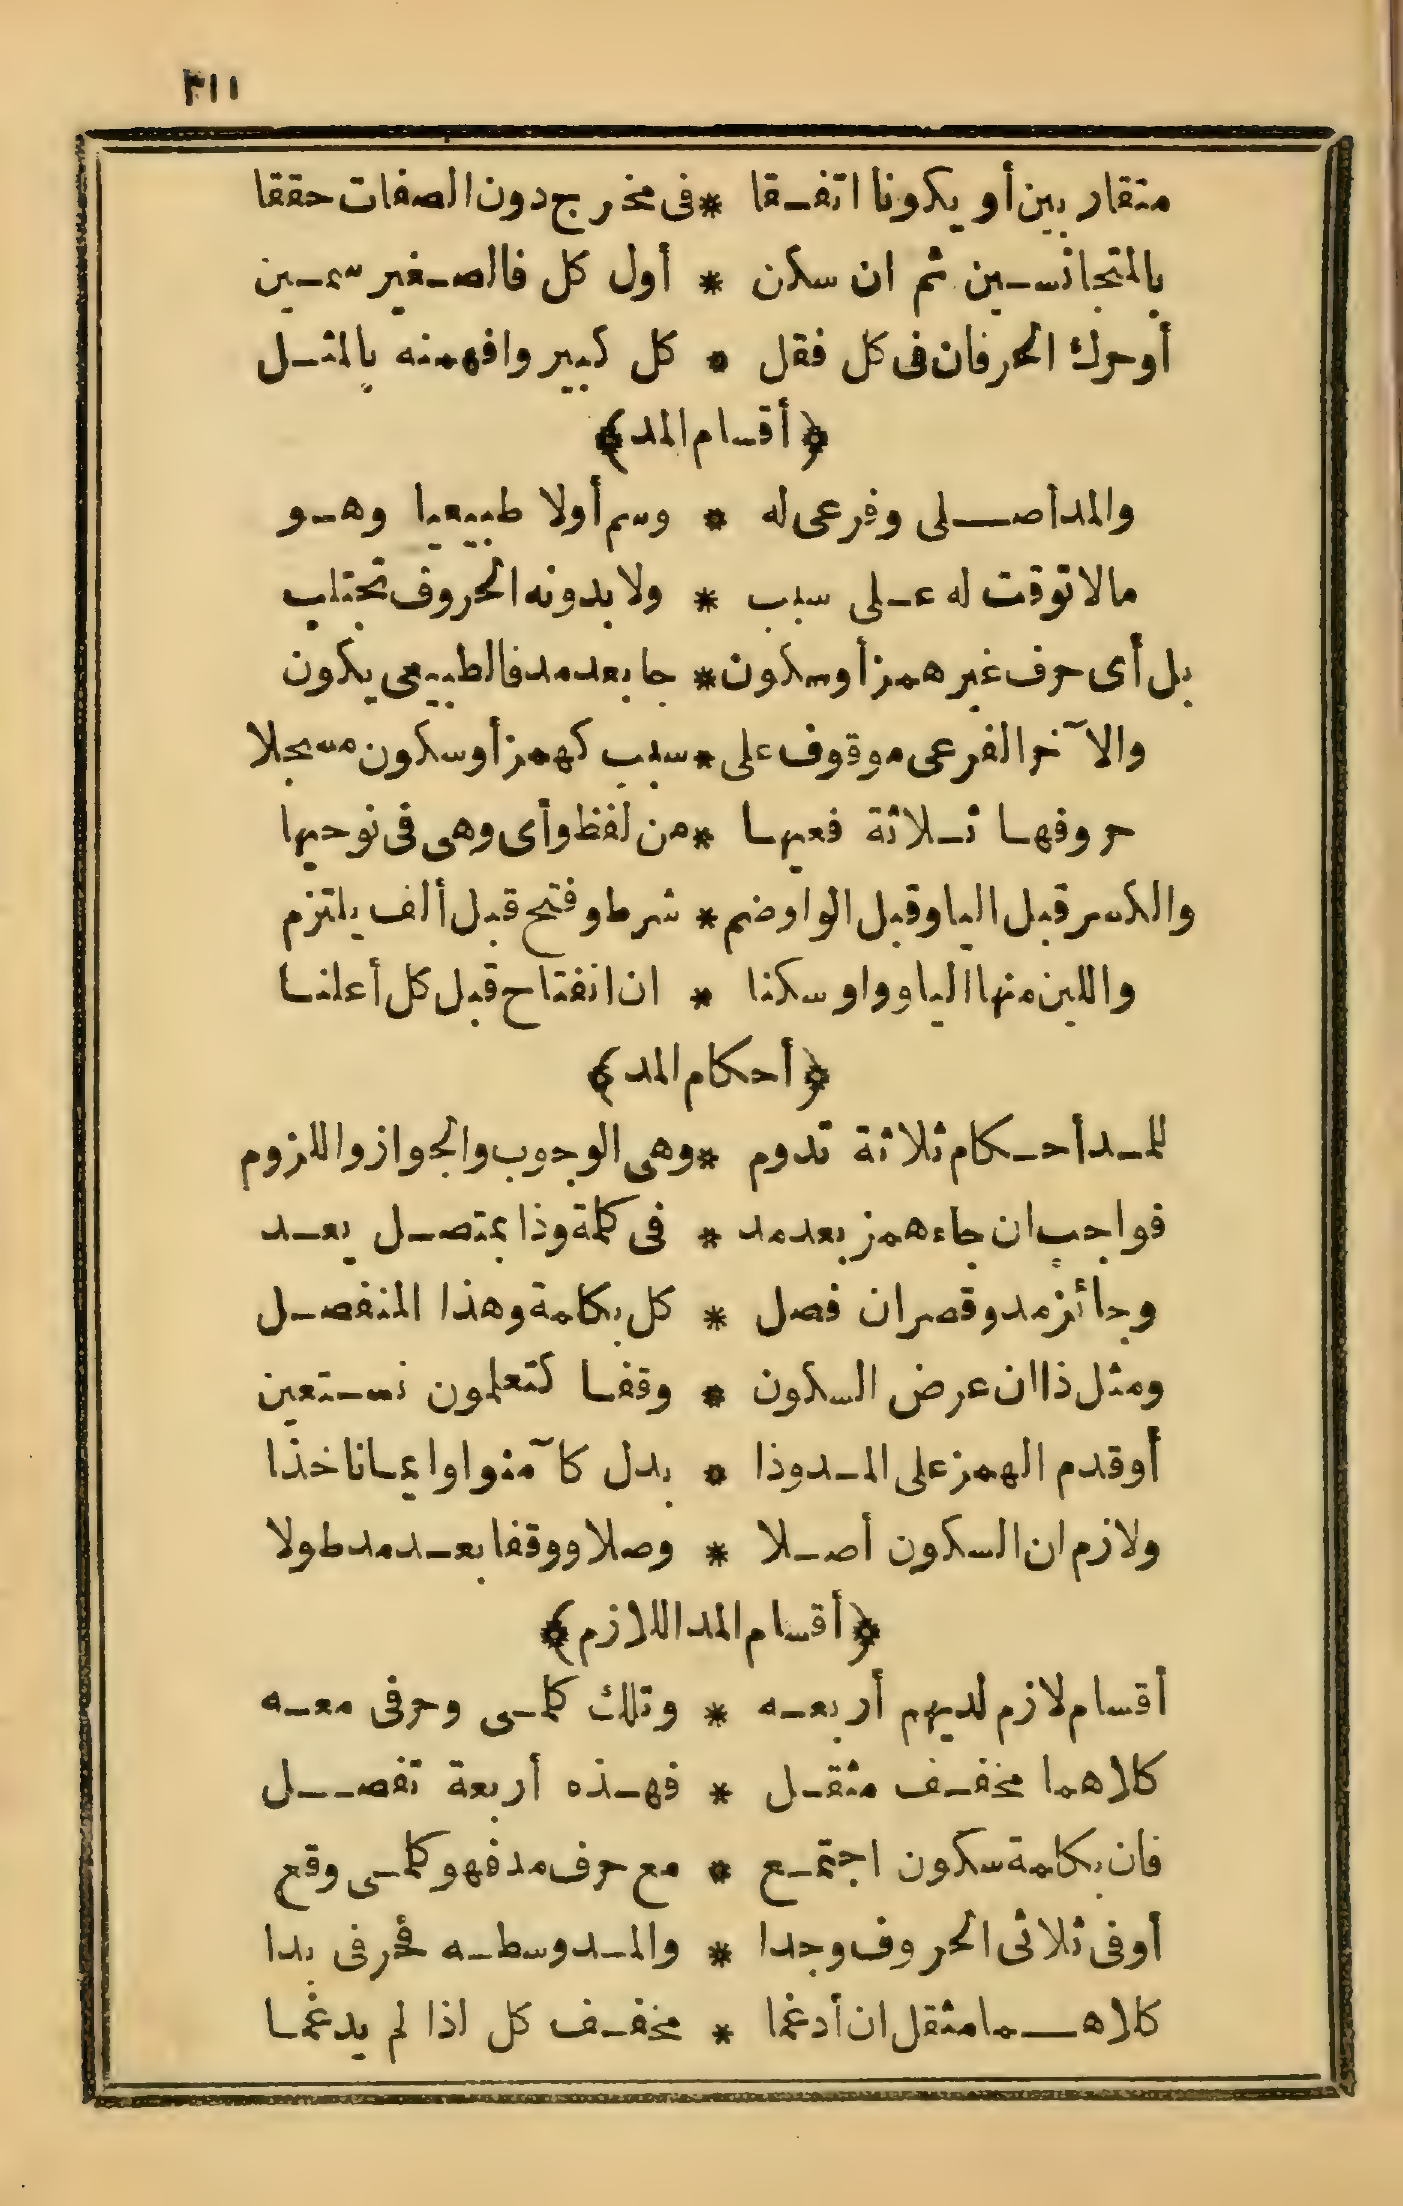 ٣١١
متقاربين أو يكونا اتفقا * فى مخرج دون الصفات حققا
بالمتجانسين ثم ان سكن * أول كل فالصغير سمين
أو حرك الحرفان فى كل فقل * كل كبير وافهمنه بالمثل
﴿أقسام المد﴾
والمد أصلى وفرعى له * وسم أولا طبيعيا وهو
مالا توقت له على سبب * ولا بدونه الحروف تجتلب
بل أى حرف غير همز أو سكون * جا بعد مد فالطبيعى يكون
والآخر الفرعى موقوف على * سبب كهمز أو سكون مسجلا
حروفها ثلاثة فعيها * من لفظ وأى وهى فى نوحيها
والكسر قبل اليا وقبل الواو ضم * شرط وفتح قبل ألف يلتزم
واللين منها اليا وواو سكنا * ان انفتاح قبل كل أعلنا
﴿أحكام المد﴾
للمد أحكام ثلاثة تدوم * وهى الوجوب والجواز واللزوم
فواجب ان جاء همز بعد مد * فى كلمة وذا بمتصل يعد
وجائز مد وقصر ان فصل * كل بكلمة وهذا المنفصل
ومثل ذا ان عرض السكون * وقفا كتعلمون نستعين
أو قدم الهمز على المد وذا * بدل كآمنوا وايمانا خذا
ولازم ان السكون أصلا * وصلا ووقفا بعد مد طولا
﴿أقسام المد اللازم﴾
أقسام لازم لديهم أربعه * وتلك كلمى وحرفى معه
كلاهما مخفف مثقل * فهذه أربعة تفصل
فان بكلمة سكون اجتمع * مع حرف مد فهو كلمى وقع
أو فى ثلاثى الحروف وجدا * والمد وسطه فحرفى بدا
كلاهما مثقل ان أدغما * مخفف كل اذا لم يدغما